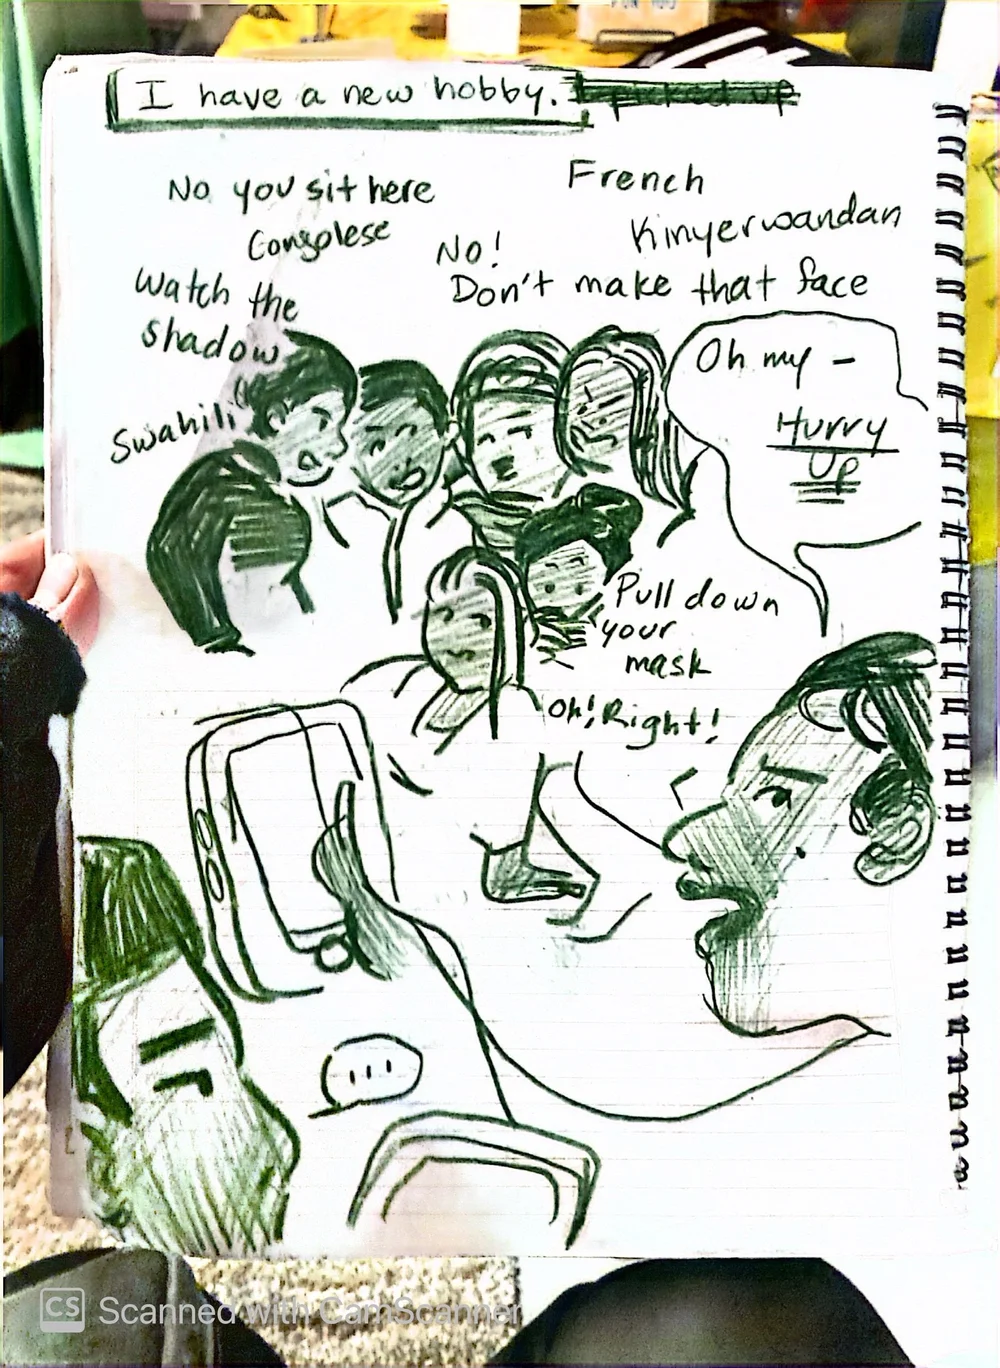 I have a new hobby. I picked up
No you sit here
Congolese
Watch the
shadow
Swahili
French
Kinyerwandan
No!
Don't make that face
Oh my –
Hurry
Up
Pull down
your
mask
Oh! Right!
...
CS Scanned with CamScanner